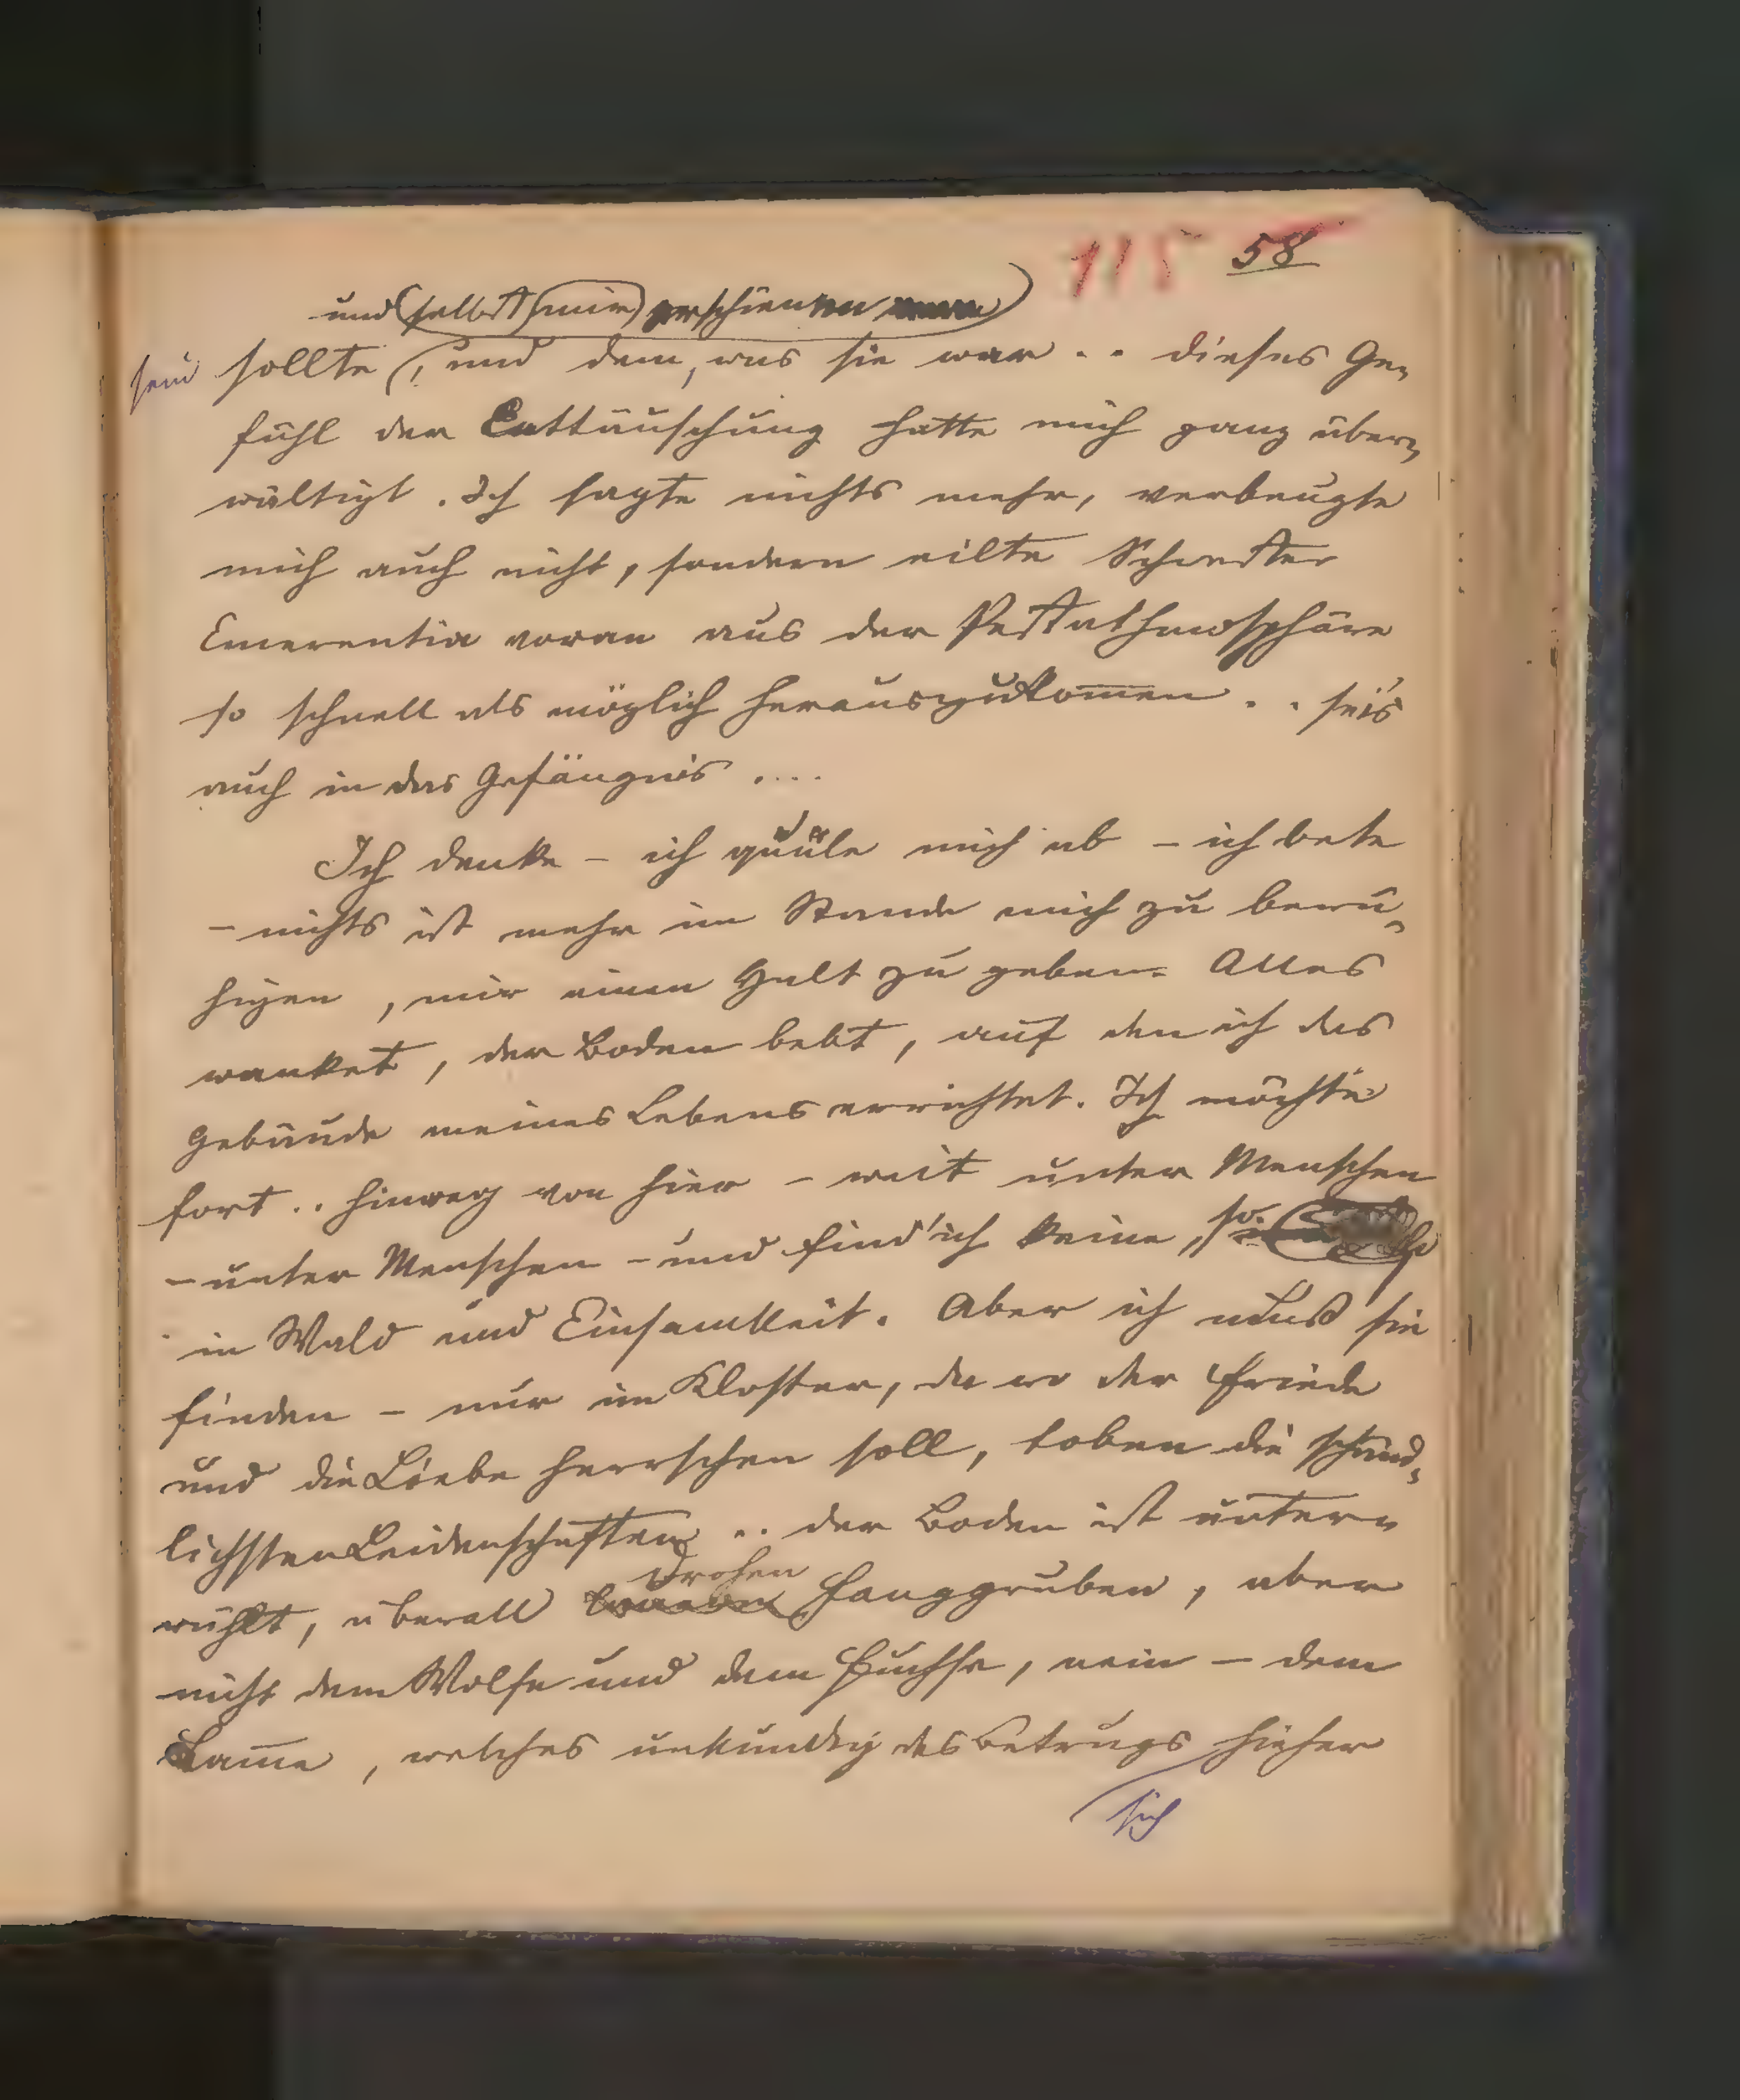 115 58
und selbst mir erschienen
sein sollte, und dem, was sie war .. dieses Ge-
fühl der Enttäuschung hatte mich ganz über-
wältigt. Ich sagte nichts mehr, verbeugte
mich auch nicht, sondern eilte Schwester
Emerentia voran aus der Pestathmosphäre
so schnell als möglich herauszukom̅en .. sei's
auch in das Gefängnis ....
Ich denke – ich quäle mich ab – ich bete
– nichts ist mehr im Stande mich zu beru-
higen, mir einen Halt zu geben. Alles
wanket, der Boden bebt, auf den ich das
Gebäude meines Lebens errichtet. Ich möchte
fort .. hinweg von hier – weit unter Menschen
– unter Menschen – und find' ich keine, so
in Wald und Einsamkeit. Aber ich muß sie
finden – nur im Kloster, da wo der Friede
und die Liebe herrschen soll, toben die schänd-
lichsten Leidenschaften .. der Boden ist unter-
drohen
wühlt, überall Fanggruben, aber
nicht dem Wolfe und dem Fuchse, nein – dem
Lam̅e, welches unkundig des Betrugs hieher
sich